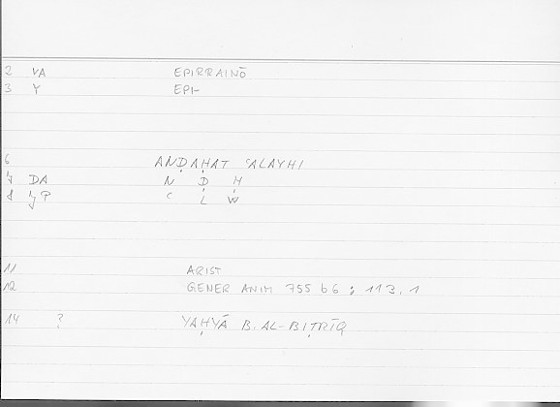 2 VA EPIRRAINŌ
3 Y EPI-
6 ANḌAḤAT ʿALAYHI
7 DA N Ḍ Ḥ
8 ʿ L W
11 ARIST
12 GENER ANIM 755 b6 ; 113,1
14 ? YAḤYĀ B. AL-BIṬRĪQ